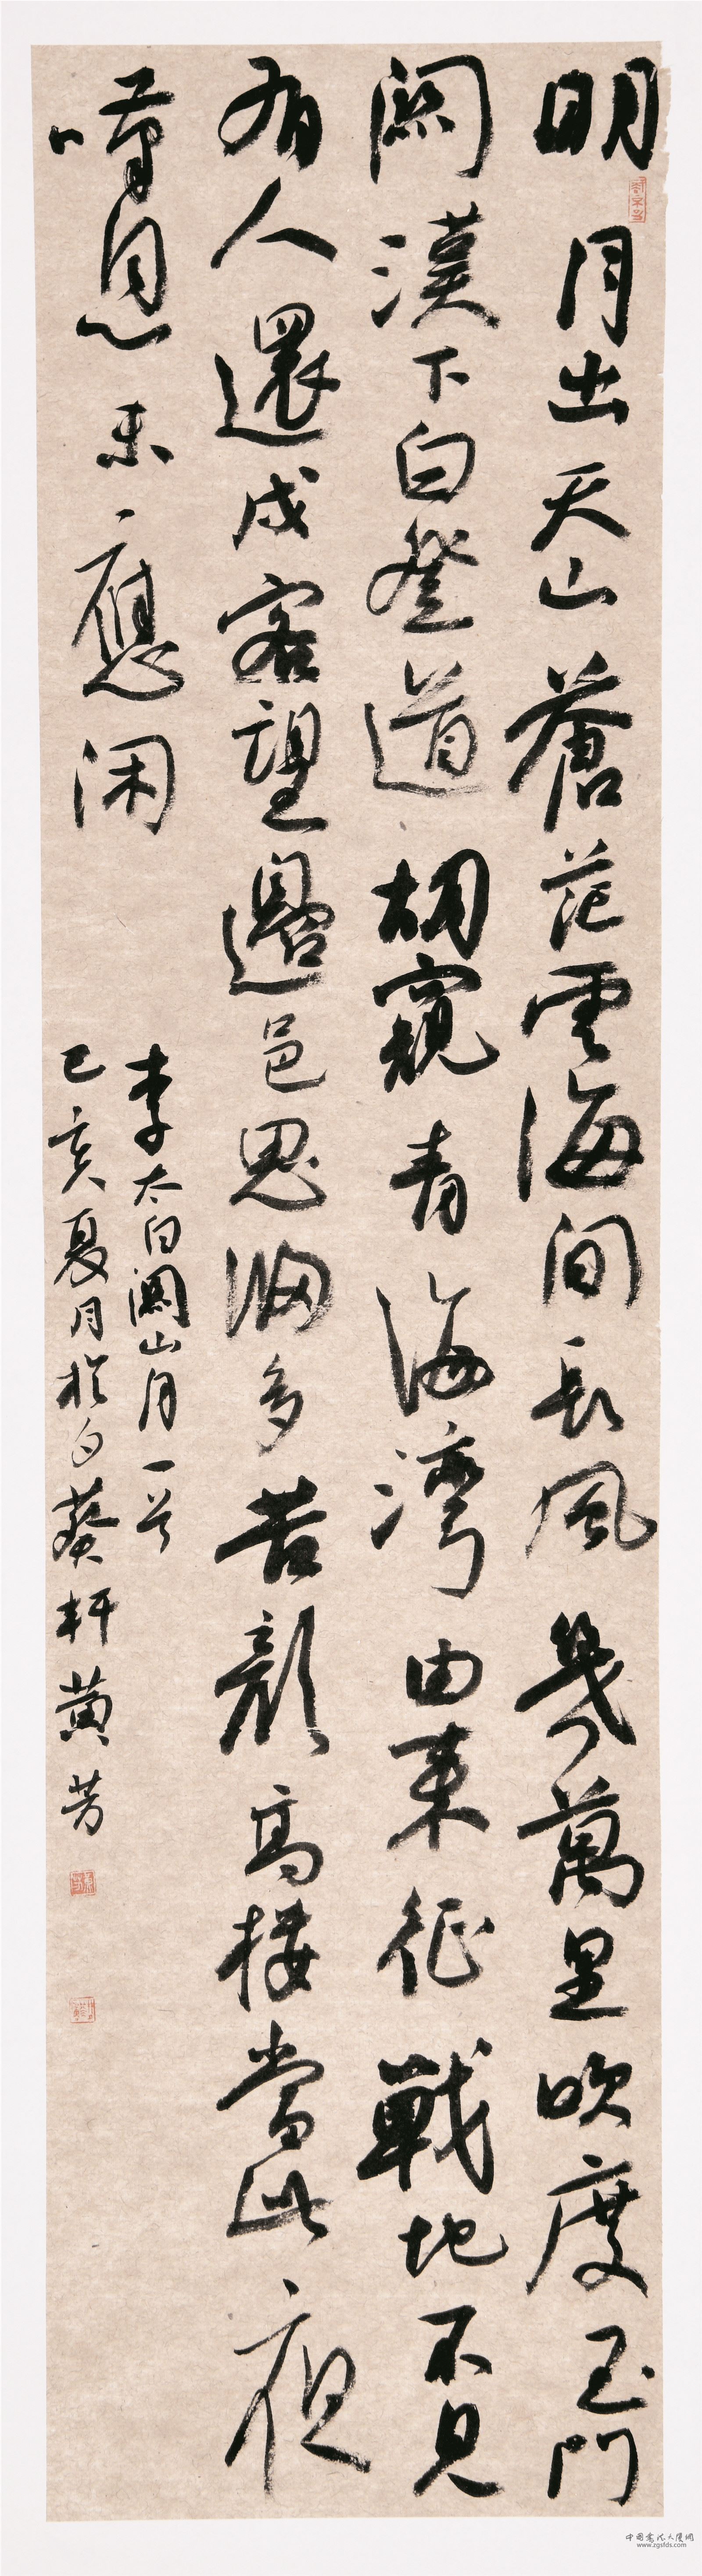 明月出天山蒼茫雲海間長風幾萬里吹度玉門
關漢下白登道胡窺青海灣由來征戰地不見
有人還戍客望邊邑思歸多苦顏高樓當此夜
嘆息未應閑
李太白關山月一首
己亥夏月於白葵軒黃芳
中国书法人物网
www.zgsfds.com